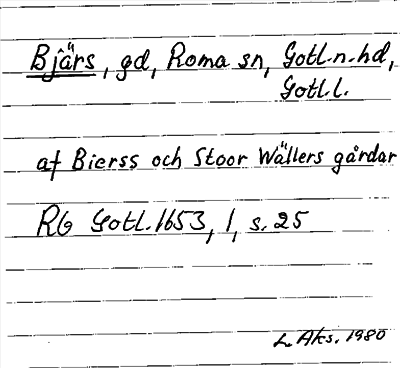 Bjärs, gd, Roma sn, Gotl.n.hd,
Gotl.l.
af Bierss och Stoor Wällers gårdar
Rb Gotl.1653, 1, s.25
L. Aks. 1980